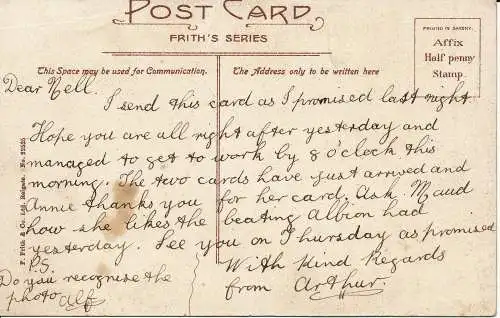 POST CARD
FRITH'S SERIES
PRINTED IN SAXONY.
Affix
Half penny
Stamp.
This Space may be used for Communication.
The Address only to be written here
Dear Nell.
I send this card as I promised last night.
Hope you are all right after yesterday and
managed to get to work by 8 o'clock this
morning. The two cards have just arrived and
Annie thanks you for her card. Ask Maud
how she likes the beating Albion had
yesterday. See you on Thursday as promised
With Kind Regards
from Arthur.
P.S.
Do you recognise the
photo Alf
F. Frith & Co. Ltd., Reigate. No.